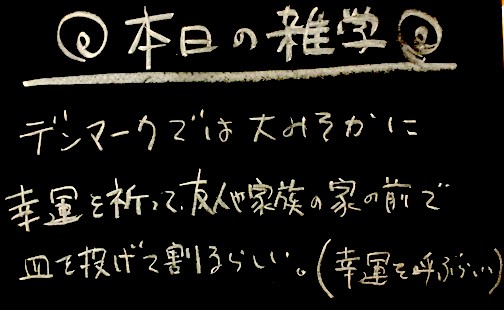 本日の雑学
デンマークでは大みそかに
幸運を祈って友人や家族の家の前で
皿を投げて割るらしい。(幸運を呼ぶらしい)